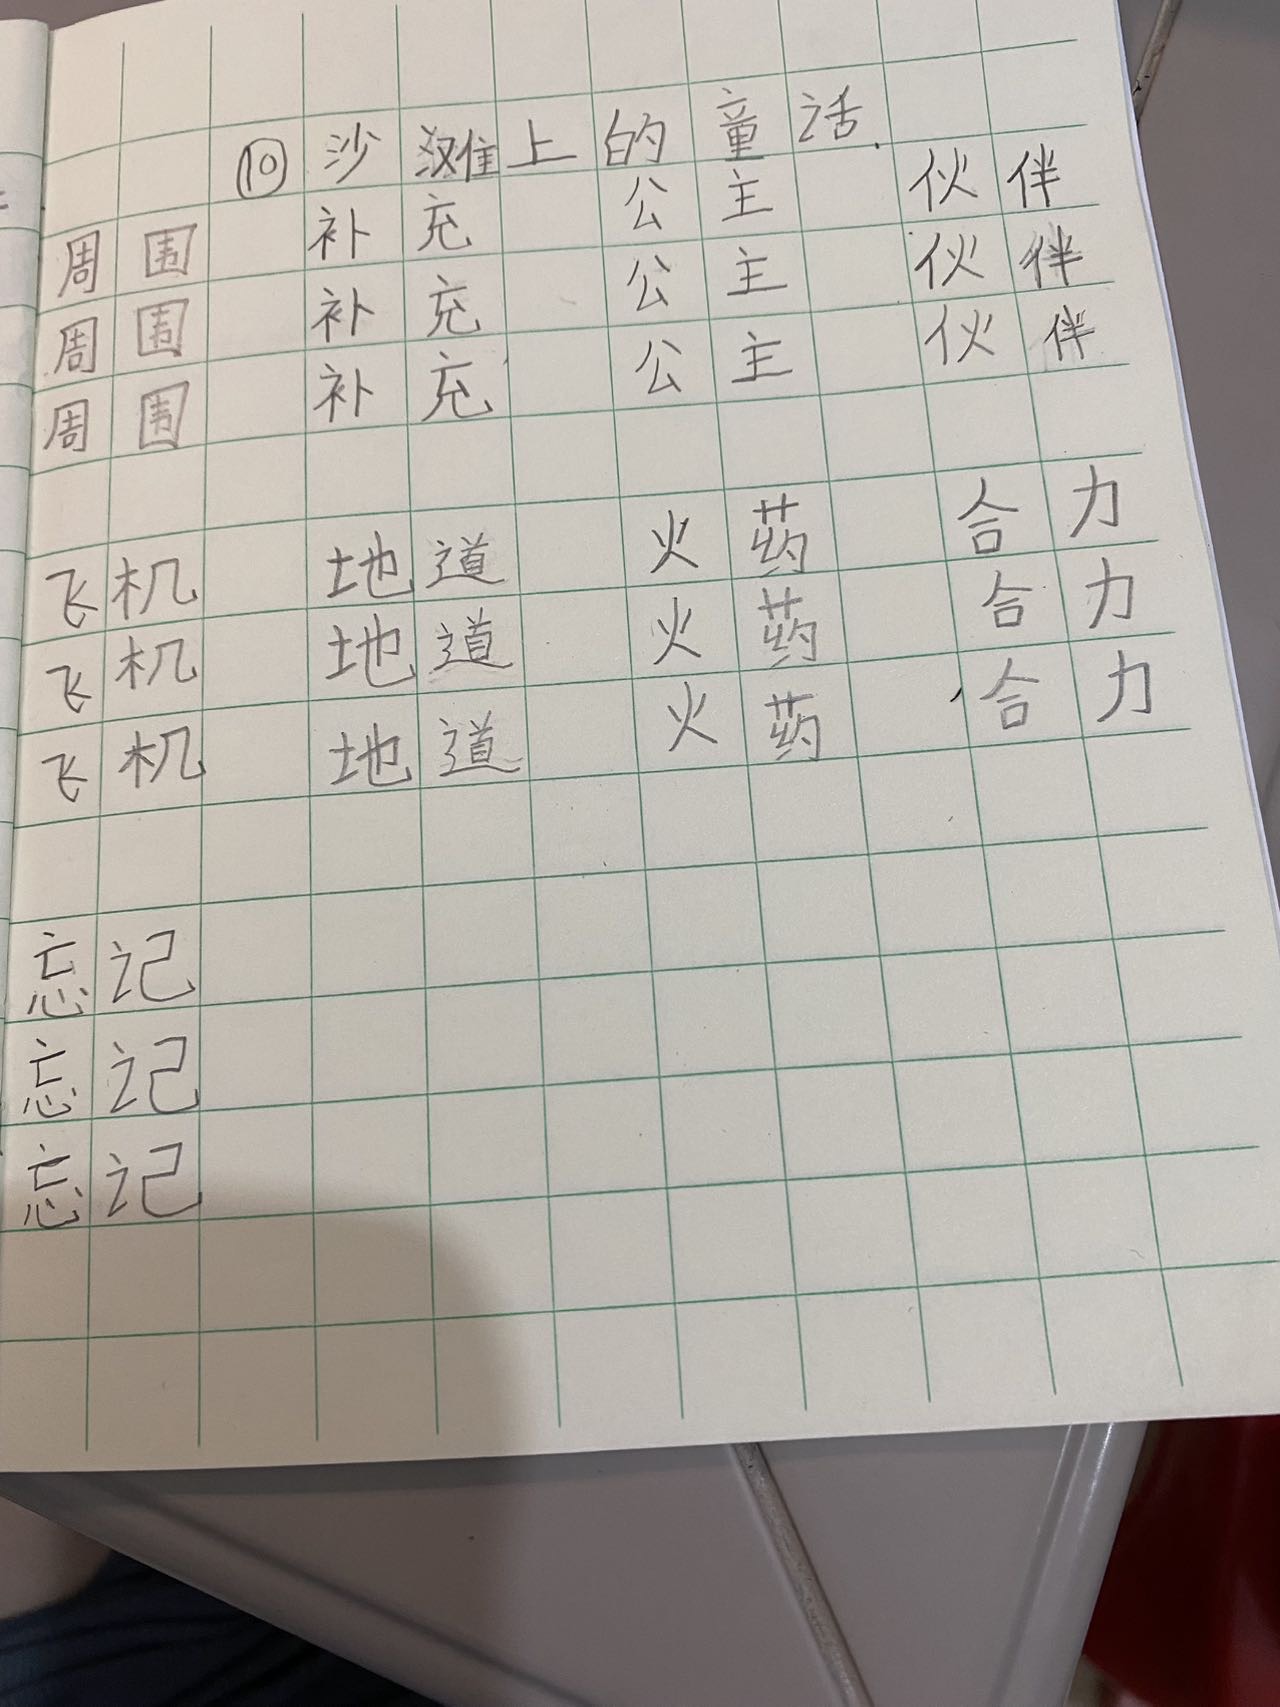 ⑩ 沙滩上的童话.
周围 补充 公主 伙伴
周围 补充 公主 伙伴
周围 补充 公主 伙伴
飞机 地道 火药 合力
飞机 地道 火药 合力
飞机 地道 火药 合力
忘记
忘记
忘记